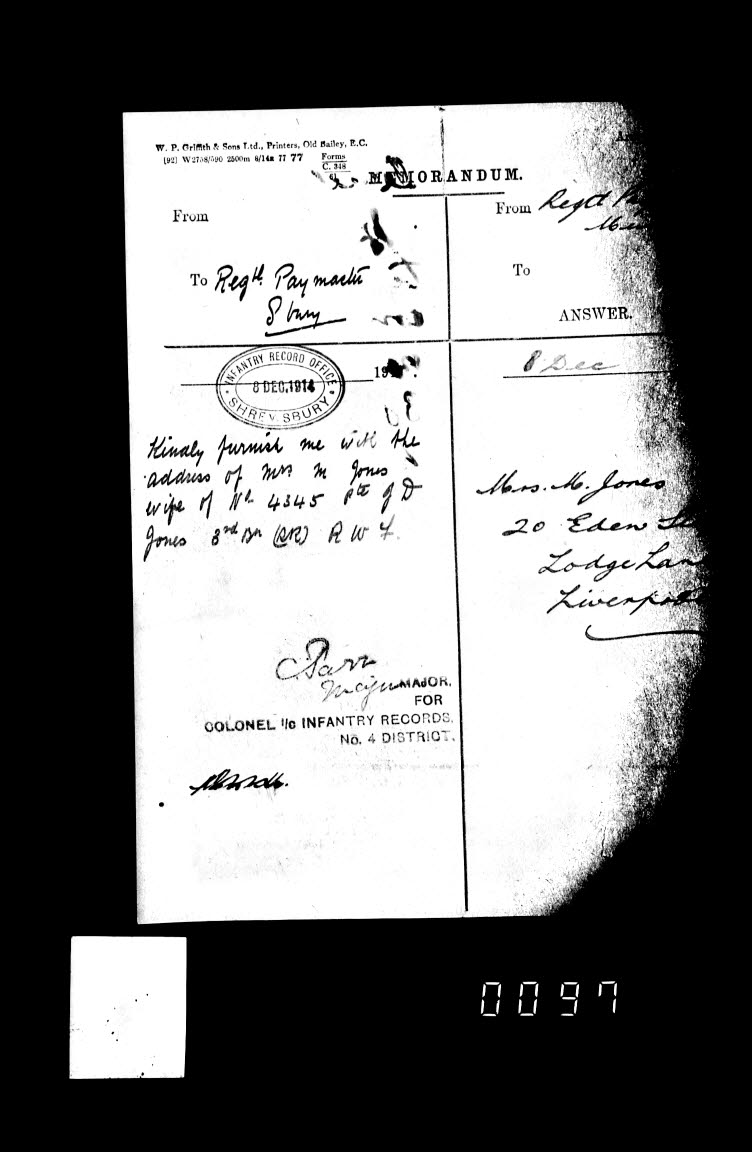 W. P. Griffith & Sons Ltd., Printers, Old Bailey, E.C.
[92] W2758/590 2500m 8/14 77 77
Forms
C. 348
MEMORANDUM.
From
To Regtl. Paymaster
S'bury
INFANTRY RECORD OFFICE
8 DEC. 1914
SHREWSBURY
19
Kindly furnish me with the
address of Mrs M Jones
wife of No. 4345 Pte D
Jones 3rd Bn (SR) R W F.
Major MAJOR.
FOR
COLONEL I/c INFANTRY RECORDS.
No. 4 DISTRICT.
From Regtl
To
ANSWER.
8 Dec
Mrs. M. Jones
20 Eden
Lodge Lan
Liverpool
0097